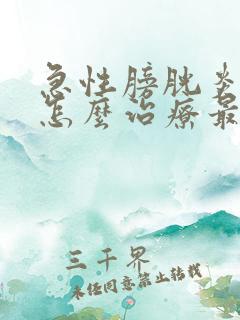 急性膀胱炎
怎麼治療最
三千界
未經同意禁止轉載